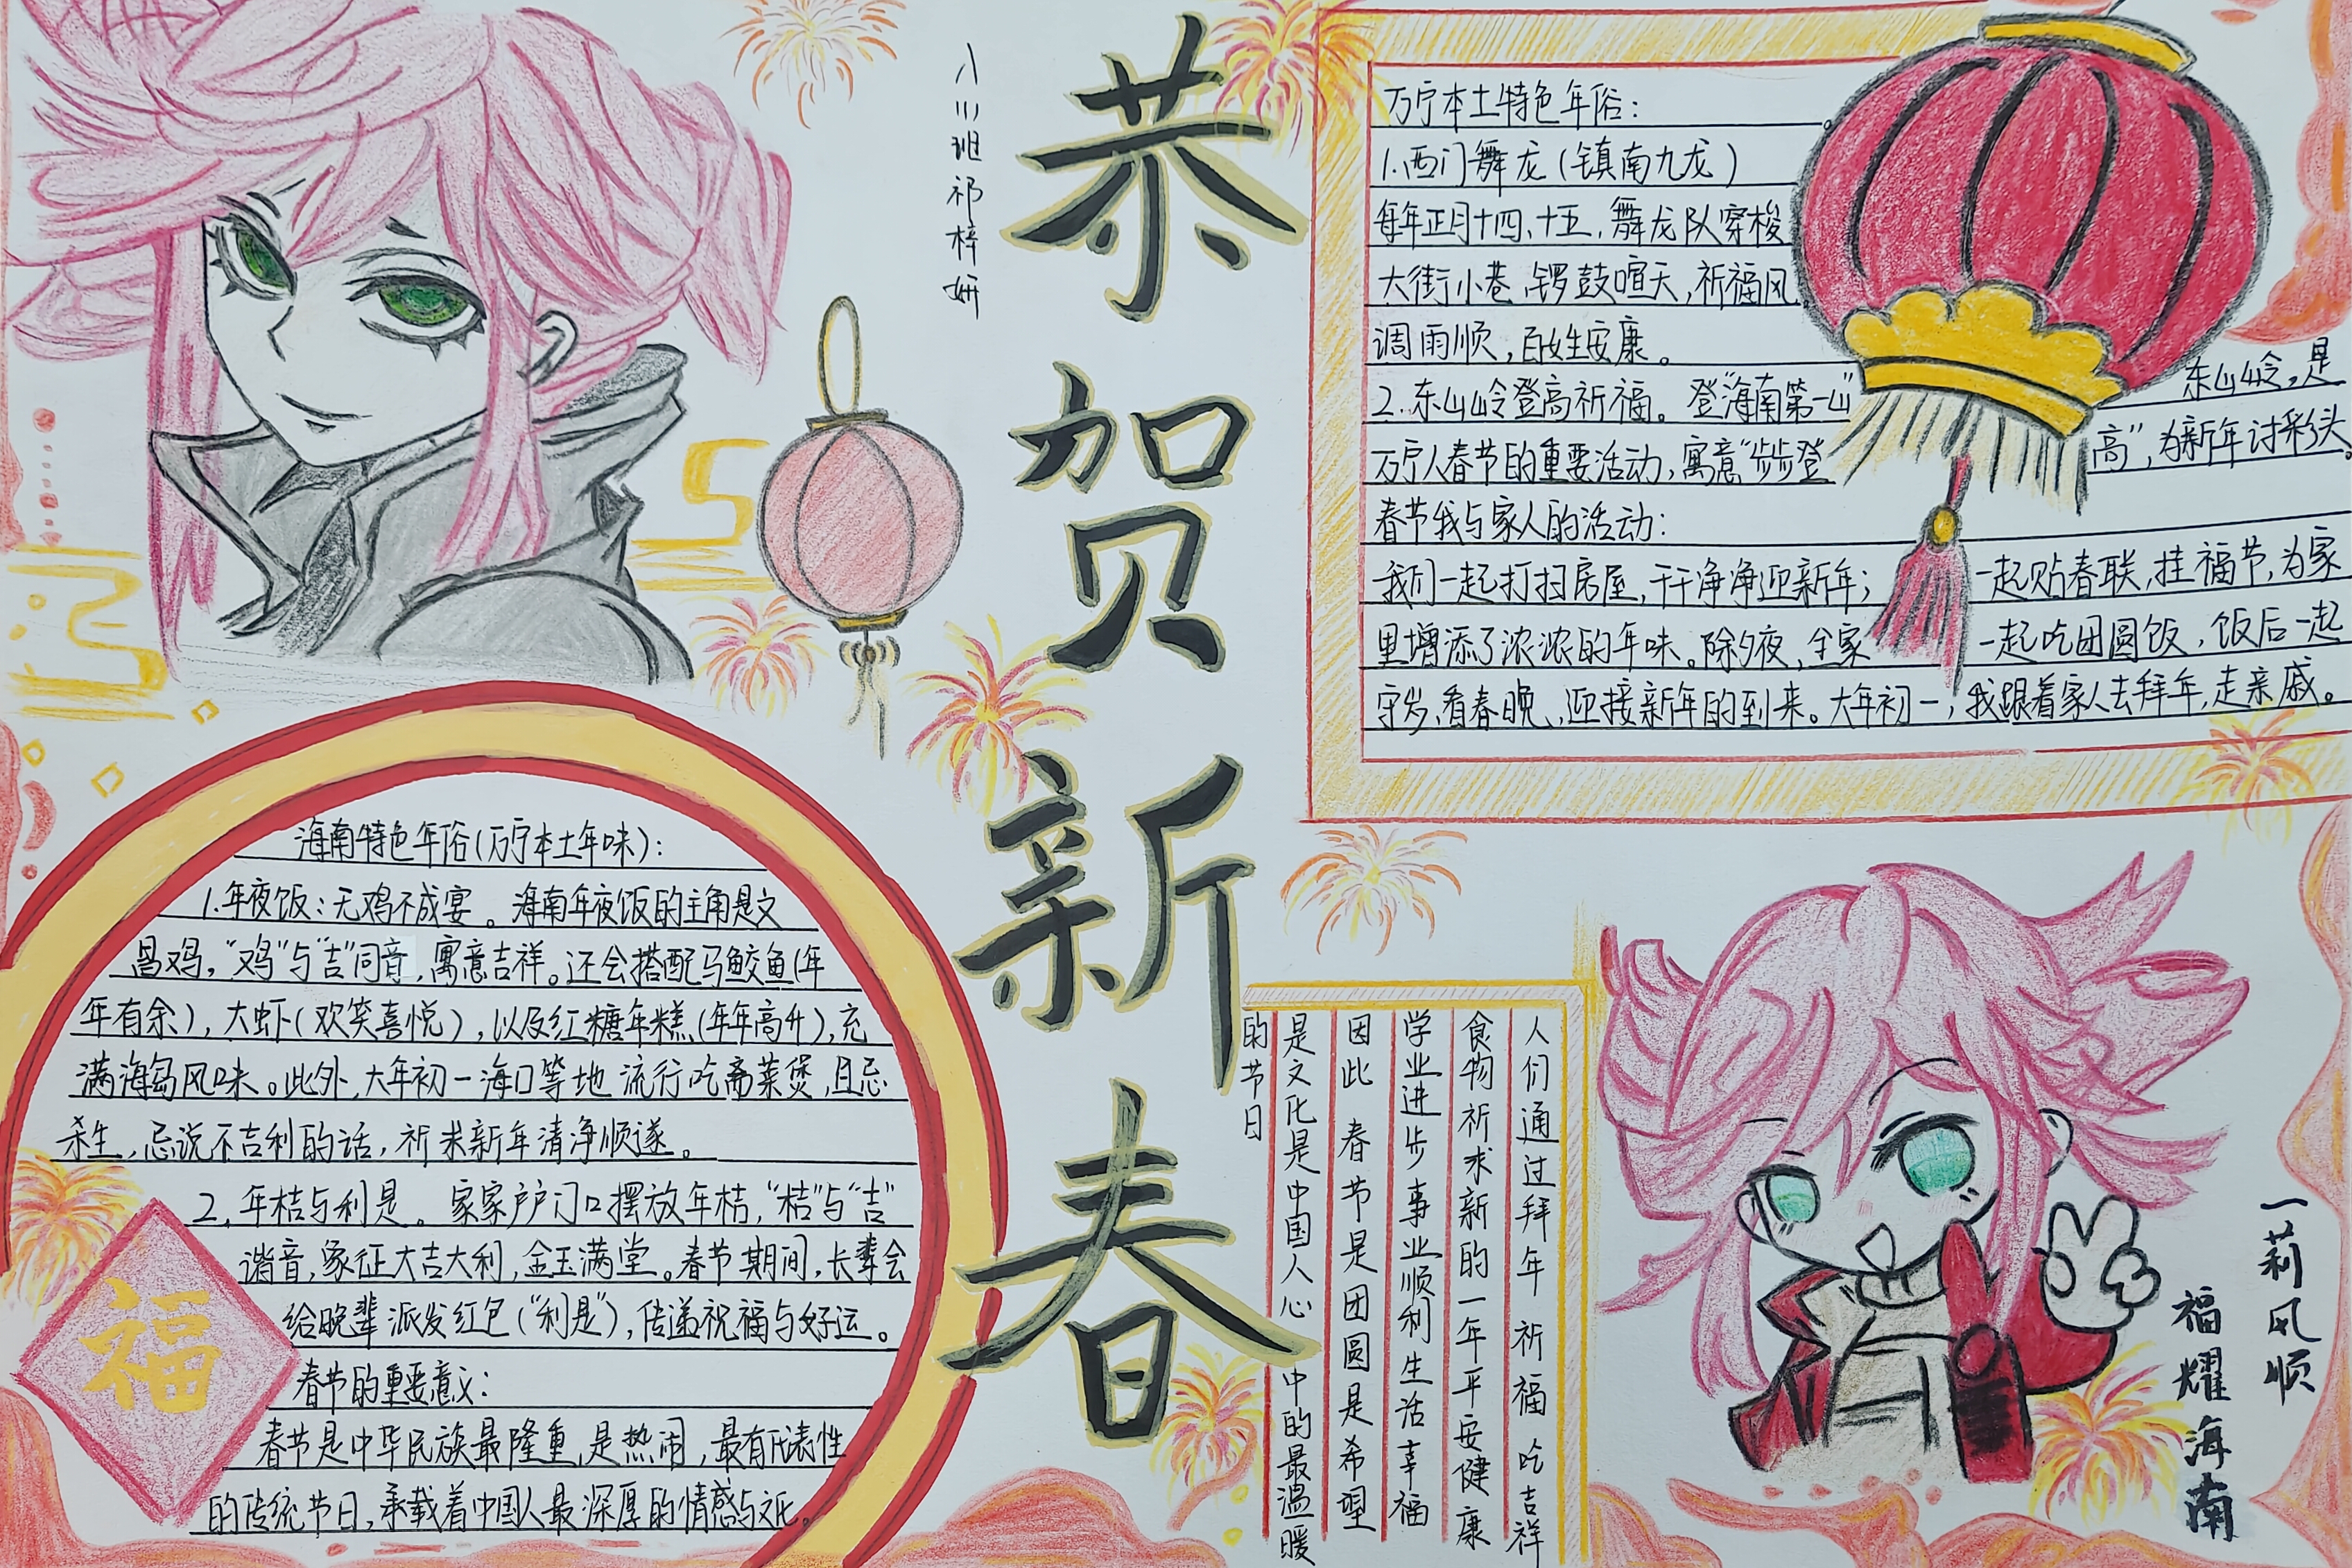 恭贺新春
八(1)班 祁梓妍
万宁本土特色年俗：
1.西门舞龙(镇南九龙)
每年正月十四、十五，舞龙队穿梭
大街小巷，锣鼓喧天，祈福风
调雨顺，百姓安康。
2.东山岭登高祈福。登“海南第一山”东山岭，是
万宁人春节的重要活动，寓意“步步登高”，为新年讨彩头。
春节我与家人的活动：
我们一起打扫房屋，干干净净迎新年；一起贴春联，挂福节，为家
里增添了浓浓的年味。除夕夜，全家一起吃团圆饭，饭后一起
守岁、看春晚、迎接新年的到来。大年初一，我跟着家人去拜年，走亲戚。
海南特色年俗(万宁本土年味)：
1.年夜饭：无鸡不成宴。海南年夜饭的主角是文
昌鸡，“鸡”与“吉”同音，寓意吉祥。还会搭配马鲛鱼(年
年有余)，大虾(欢笑喜悦)，以及红糖年糕(年年高升)，充
满海岛风味。此外，大年初一海口等地流行吃斋菜煲，且忌
杀生，忌说不吉利的话，祈求新年清净顺遂。
2.年桔与利是。家家户户门口摆放年桔，“桔”与“吉”
谐音，象征大吉大利，金玉满堂。春节期间，长辈会
给晚辈派发红包(“利是”)，传递祝福与好运。
春节的重要意义：
春节是中华民族最隆重，是热闹，最有代表性
的传统节日，承载着中国人最深厚的情感与文化。
福
人们通过拜年 祈福 吃吉祥
食物 祈求新的一年平安健康
学业进步 事业顺利 生活幸福
因此 春节是团圆 是希望
是文化 是中国人心中的最温暖
的节日
一莉风顺
福耀海南